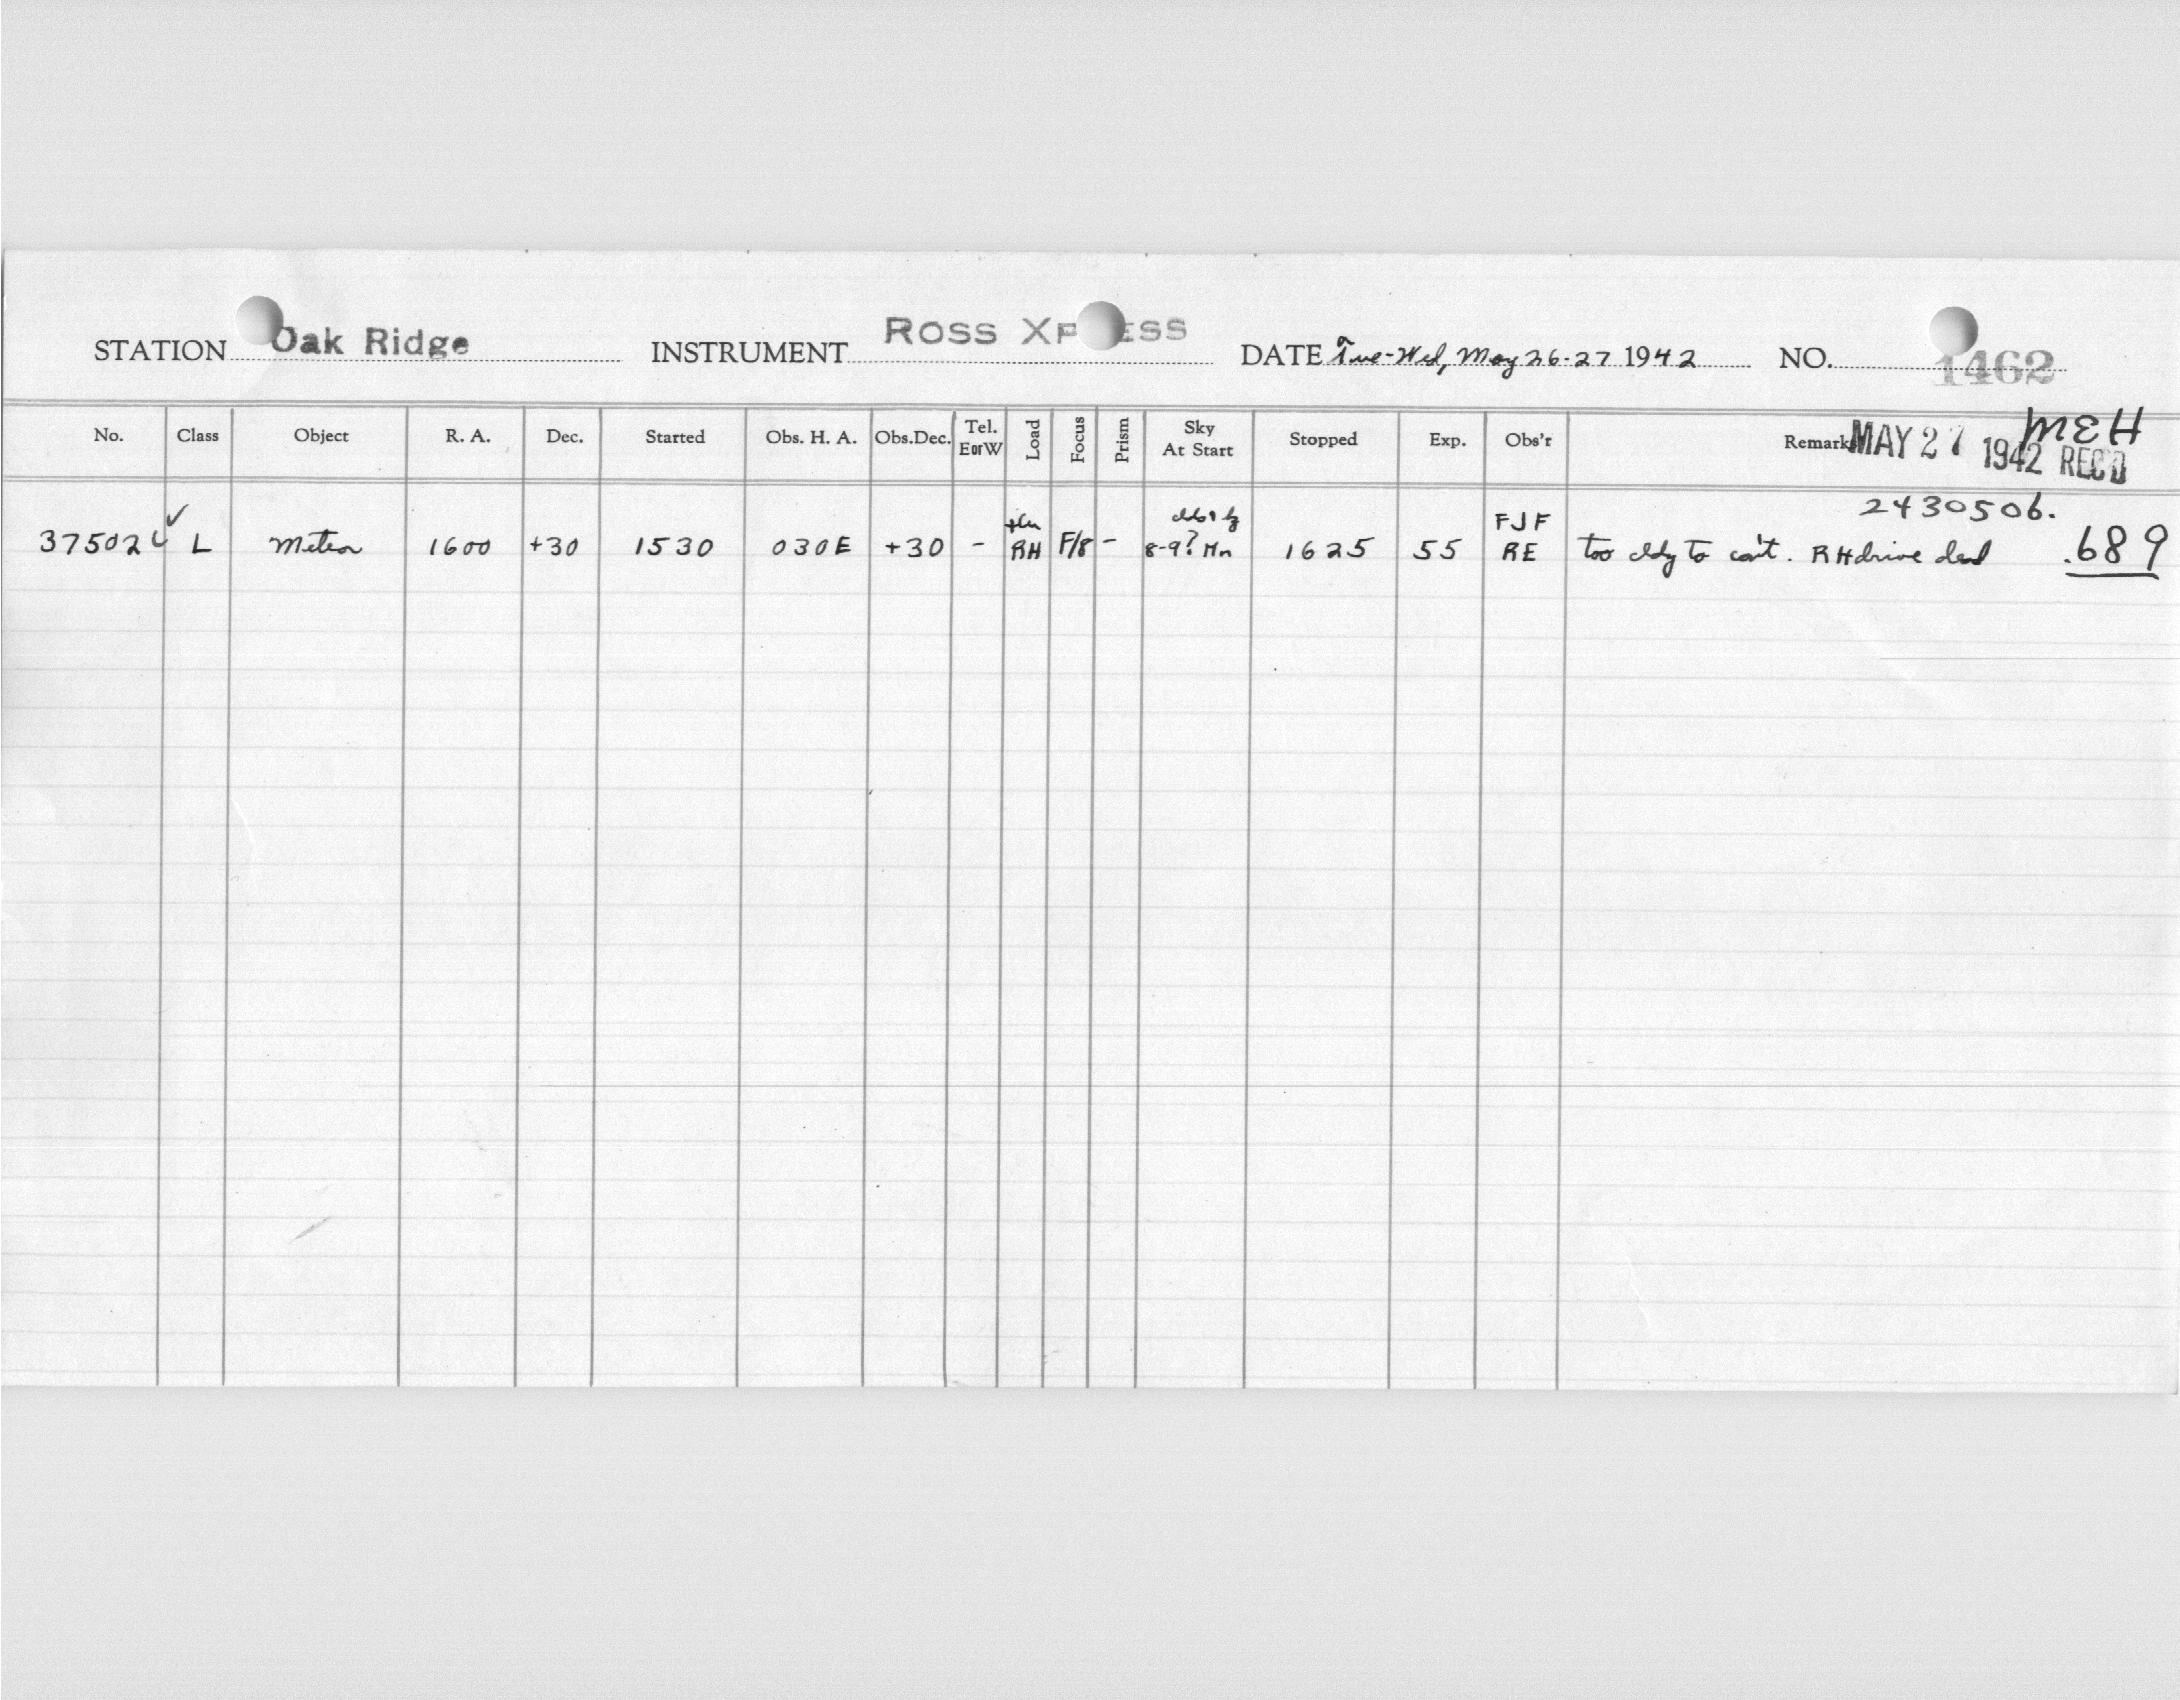 STATION Oak Ridge INSTRUMENT ROSS XPRESS DATE Tue-Wed, May 26-27 1942 NO. 1462
No. Class Object R. A. Dec. Started Obs. H. A. Obs.Dec. Tel. EorW Load Focus Prism Sky At Start Stopped Exp. Obs'r Remarks MAY 27 1942 REC'D MEH
2430506.
37502 ✓ L Meteor 1600 +30 1530 030E +30 - RH F/8 - 8-9? Mn 1625 55 FJF RE too cldy to con't. RH drive dead .689